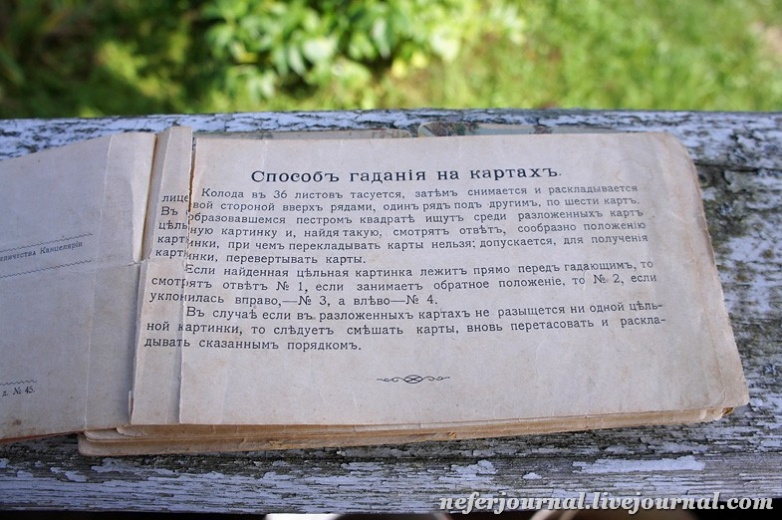 Способъ гаданія на картахъ.
Колода въ 36 листовъ тасуется, затѣмъ снимается и раскладывается
лицевой стороной вверхъ рядами, одинъ рядъ подъ другимъ, по шести картъ.
Въ образовавшемся пестромъ квадратѣ ищутъ среди разложенныхъ картъ
цѣльную картинку и, найдя такую, смотрятъ отвѣтъ, сообразно положенію
картинки, при чемъ перекладывать карты нельзя; допускается, для полученія
картинки, перевертывать карты.
Если найденная цѣльная картинка лежитъ прямо передъ гадающимъ, то
смотрятъ отвѣтъ № 1, если занимаетъ обратное положеніе, то № 2, если
уклонилась вправо,—№ 3, а влѣво—№ 4.
Въ случаѣ если въ разложенныхъ картахъ не разыщется ни одной цѣль-
ной картинки, то слѣдуетъ смѣшать карты, вновь перетасовать и раскла-
дывать сказаннымъ порядкомъ.
Канцеляріи
д. № 45.
neferjournal.livejournal.com